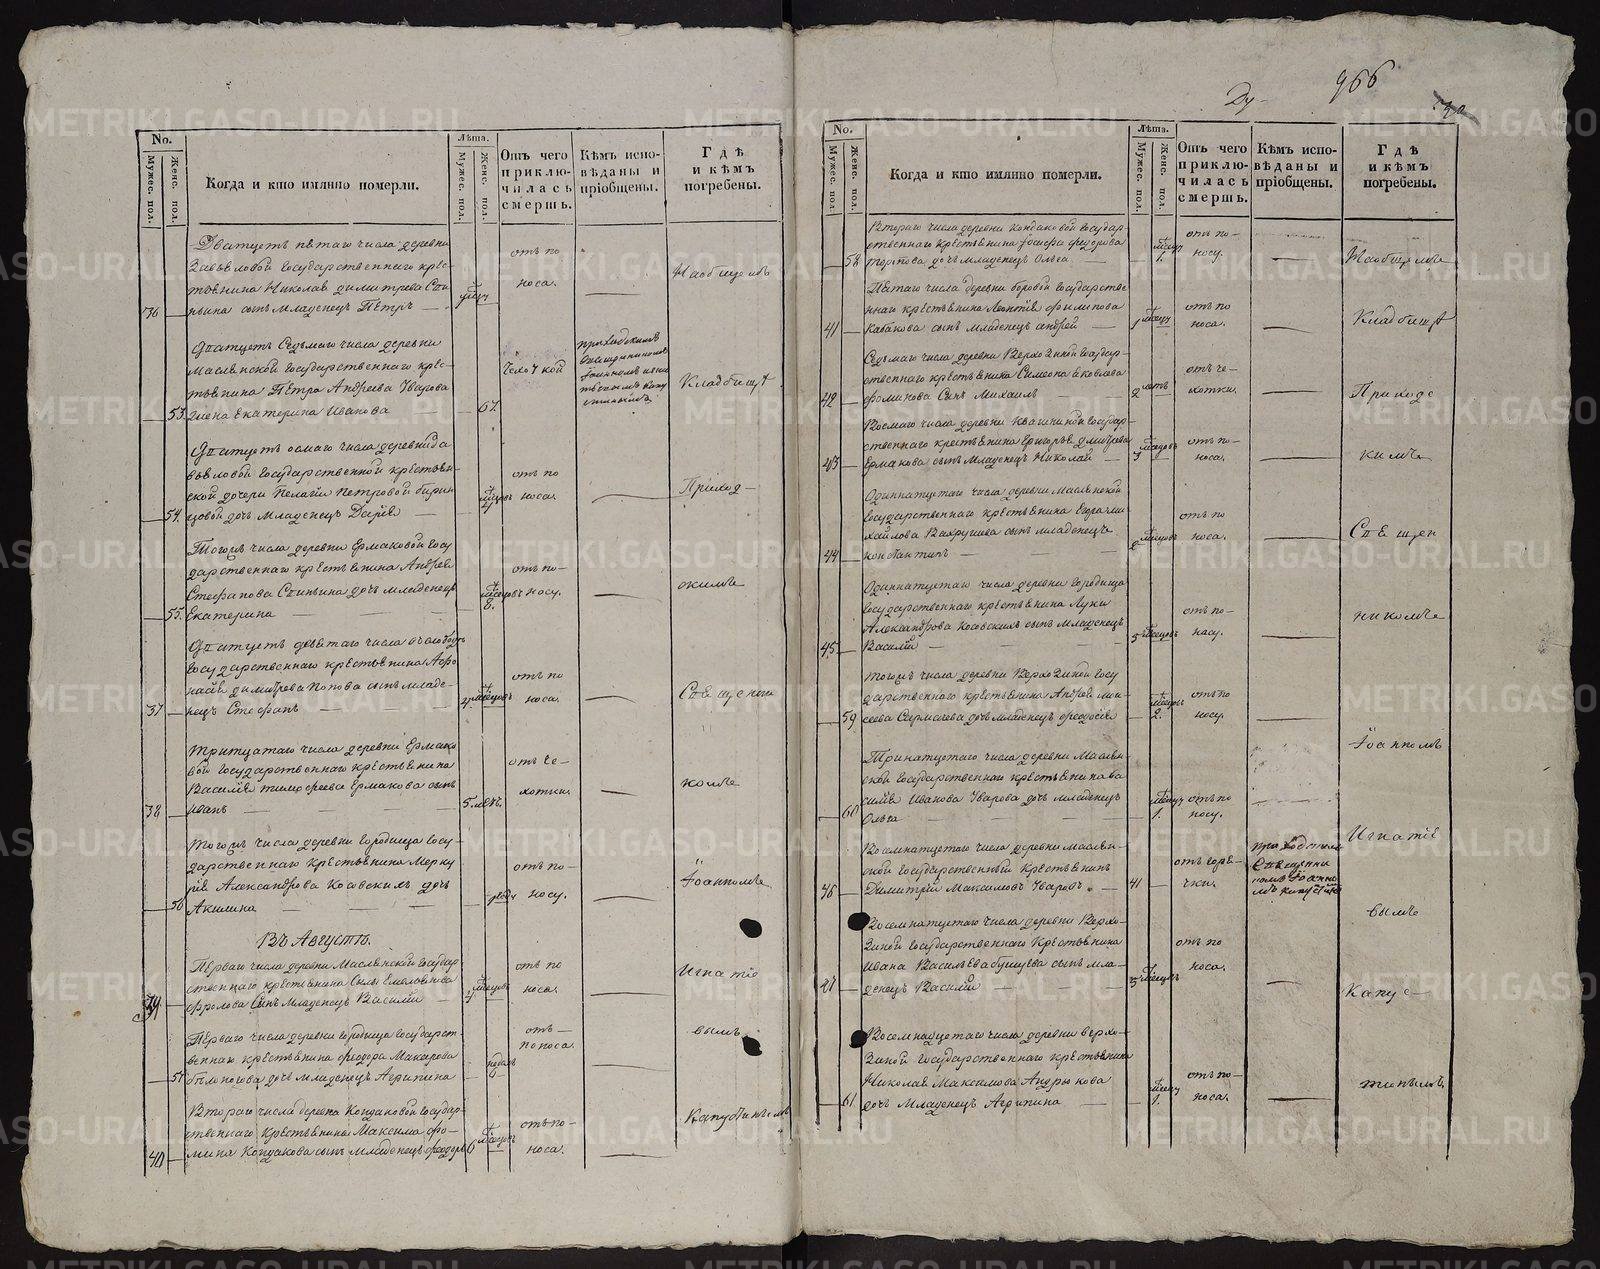 No.
Мужес. пол.
Женс. пол.
Когда и кто имянно померли.
Лѣта.
Мужес. пол.
Женс. пол.
Отъ чего приключилась смерть.
Кѣмъ исповѣданы и пріобщены.
Гдѣ и кѣмъ погребены.
Дватцеть пятаго числа деревни
Завьяловой Государственнаго крес-
тьянина Николая Димитрева
сынъ младенецъ Петръ
36
отъ по
носа.
На общемъ
Дватцеть седьмаго числа деревни
Маслянской Государственнаго крес-
тьянина Петра Андреева Уварова
жена Екатерина Иванова
53
67.
Кладбищѣ
Дватцеть осмаго числа деревни За
вьяловой Государственной крестьян-
ской дочери Пелагіи Петровой
дочь младенецъ Дарія
54.
отъ по
носа.
Приход-
Тогожъ числа деревни Ермаковой Госу
дарственнаго крестьянина Андрея
Стефанова дочь младенецъ
Екатерина
55.
8.
отъ по-
носу.
скимъ
Дватцеть девятаго числа
Государственнаго крестьянина Афо
насія Димитрева Попова сынъ младе-
нецъ Стефанъ
37
отъ по
носа.
Священни
Тритцатаго числа деревни Ермако
вой Государственнаго крестьянина
Василія Тимофеева Ермакова сынъ
Иванъ
38
5. лѣтъ.
отъ че-
хотки.
комъ
Тогожъ числа деревни Городища Госу-
дарственнаго крестьянина Мерку
рія Александрова дочь
Акилина
56
отъ по-
носу.
Іоанномъ
Въ Августѣ.
Перваго числа деревни Маслянской Государ-
ственнаго крестьянина Силы Емельянова
Фролова сынъ младенецъ Василій
39
отъ по
носа.
Игнатіе
Перваго числа деревни Городища Государст-
веннаго крестьянина Феодора Макарова
дочь младенецъ Агрипина
57
отъ
поноса.
вымъ
Втораго числа деревни Кондаковой Государ-
ственнаго крестьянина Максима Фо-
мина Кондакова сынъ младенецъ Феодоръ
40
6
отъ по-
носа.
Капустинымъ
966
No.
Мужес. пол.
Женс. пол.
Когда и кто имянно померли.
Лѣта.
Мужес. пол.
Женс. пол.
Отъ чего приключилась смерть.
Кѣмъ исповѣданы и пріобщены.
Гдѣ и кѣмъ погребены.
Втораго числа деревни Кондаковой Государ-
ственнаго крестьянина Іосифа Феодорова
дочь младенецъ Ольга
58
1.
отъ по-
носу.
На общемъ
Пятаго числа деревни Боровой Государстве-
ннаго крестьянина Леонтія Филипова
Кабакова сынъ младенецъ Андрей
41
отъ по
носа.
Кладбищѣ
Седьмаго числа деревни Верхо Зиной Государ-
ственнаго крестьянина Симеона Яковлева
Фоминова сынъ Михаилъ
42
2
отъ че-
хотки.
Приходс
Восмаго числа деревни Квашниной Государ-
ственнаго крестьянина Григорья Дмитрева
Ермакова сынъ младенецъ Николай
43
3
отъ по-
носа.
кимъ
Одиннатцетаго числа деревни Маслянской
Государственнаго крестьянина Егора Ми
хайлова Вахрушева сынъ младенецъ
Константинъ
44
отъ по
носа.
Священ
Одиннатцетаго числа деревни Городища
Государственнаго крестьянина Луки
Александрова сынъ младенецъ
Василій
45.
5
отъ по-
носу.
никомъ
Тогожъ числа деревни Верхо Зиной Госу
дарственнаго крестьянина Андрея Мои-
сеева дочь младенецъ Феодосія
59
2.
отъ по
носу.
Іоанномъ
Тринатцетаго числа деревни Маслян-
ской Государственнаго крестьянина Ва
силія Иванова Уварова дочь младенецъ
Ольга
60
1.
отъ по
носу.
Игнатіе
Восемнатцетаго числа деревни Маслян-
ской Государственный крестьянинъ
Димитрій Максимовъ Уваровъ
46
41
отъ горя-
чки.
вымъ
Восемнатцетаго числа деревни Верхо-
Зиной Государственнаго крестьянина
Ивана Васильева сынъ мла-
денецъ Василій
47
5
отъ по
носа.
Капус-
Восемнатцетаго числа деревни Верхо-
Зиной Государственнаго крестьянина
Николая Максимова Андрюкова
дочь младенецъ Агрипина
61.
1.
отъ по-
носа.
тинымъ
METRIKI.GASO-URAL.RU